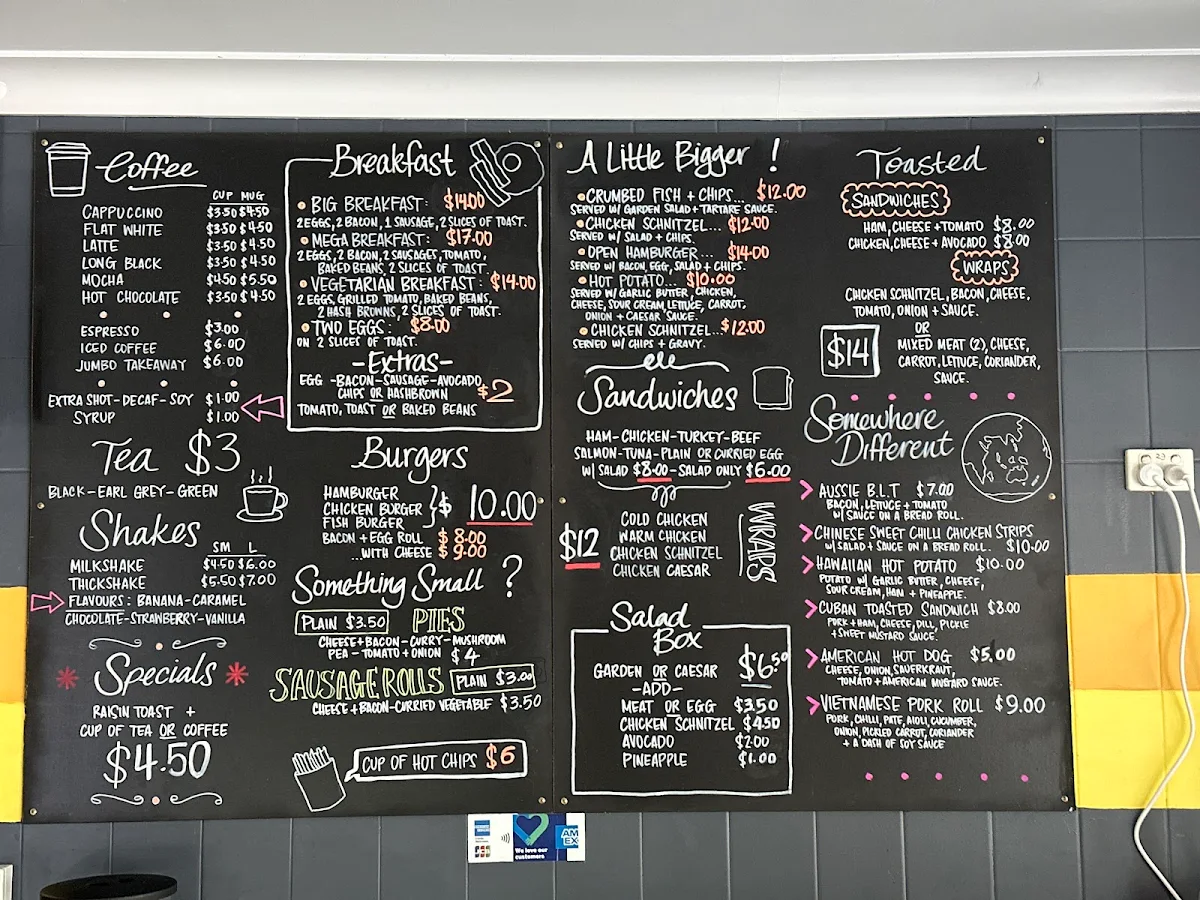 Coffee
CUP MUG
CAPPUCCINO $3.50 $4.50
FLAT WHITE $3.50 $4.50
LATTE $3.50 $4.50
LONG BLACK $3.50 $4.50
MOCHA $4.50 $5.50
HOT CHOCOLATE $3.50 $4.50
ESPRESSO $3.00
ICED COFFEE $6.00
JUMBO TAKEAWAY $6.00
EXTRA SHOT-DECAF-SOY $1.00
SYRUP $1.00
Tea $3
BLACK-EARL GREY-GREEN
Shakes
SM L
MILKSHAKE $4.50 $6.00
THICKSHAKE $5.50 $7.00
FLAVOURS: BANANA-CARAMEL
CHOCOLATE-STRAWBERRY-VANILLA
Specials
RAISIN TOAST +
CUP OF TEA OR COFFEE
$4.50
Breakfast
BIG BREAKFAST: $14.00
2 EGGS, 2 BACON, 1 SAUSAGE, 2 SLICES OF TOAST.
MEGA BREAKFAST: $17.00
2 EGGS, 2 BACON, 2 SAUSAGES, TOMATO,
BAKED BEANS, 2 SLICES OF TOAST.
VEGETARIAN BREAKFAST: $14.00
2 EGGS, GRILLED TOMATO, BAKED BEANS,
2 HASH BROWNS, 2 SLICES OF TOAST.
TWO EGGS: $8.00
ON 2 SLICES OF TOAST.
-Extras-
EGG -BACON-SAUSAGE-AVOCADO
CHIPS OR HASHBROWN $2
TOMATO, TOAST OR BAKED BEANS
Burgers
HAMBURGER
CHICKEN BURGER } $ 10.00
FISH BURGER
BACON + EGG ROLL $ 8.00
...WITH CHEESE $ 9.00
Something Small ?
PLAIN $3.50 PIES
CHEESE+BACON-CURRY-MUSHROOM
PEA-TOMATO+ONION $4
SAUSAGE ROLLS PLAIN $3.00
CHEESE+BACON-CURRIED VEGETABLE $3.50
CUP OF HOT CHIPS $6
A Little Bigger !
CRUMBED FISH + CHIPS... $12.00
SERVED W/ GARDEN SALAD + TARTARE SAUCE.
CHICKEN SCHNITZEL... $12.00
SERVED W/ SALAD + CHIPS.
OPEN HAMBURGER... $14.00
SERVED W/ BACON, EGG, SALAD + CHIPS.
HOT POTATO... $10.00
SERVED W/ GARLIC BUTTER, CHICKEN,
CHEESE, SOUR CREAM, LETTUCE, CARROT,
ONION + CAESAR SAUCE.
CHICKEN SCHNITZEL... $12.00
SERVED W/ CHIPS + GRAVY.
Sandwiches
HAM-CHICKEN-TURKEY-BEEF
SALMON-TUNA-PLAIN OR CURRIED EGG
W/ SALAD $8.00-SALAD ONLY $6.00
$12
COLD CHICKEN
WARM CHICKEN
CHICKEN SCHNITZEL
CHICKEN CAESAR
WRAPS
Salad
Box
GARDEN OR CAESAR $6.50
-ADD-
MEAT OR EGG $3.50
CHICKEN SCHNITZEL $4.50
AVOCADO $2.00
PINEAPPLE $1.00
Toasted
SANDWICHES
HAM, CHEESE + TOMATO $8.00
CHICKEN, CHEESE + AVOCADO $8.00
WRAPS
CHICKEN SCHNITZEL, BACON, CHEESE,
TOMATO, ONION + SAUCE.
OR
$14
MIXED MEAT (2), CHEESE,
CARROT, LETTUCE, CORIANDER,
SAUCE.
Somewhere
Different
AUSSIE B.L.T $7.00
BACON, LETTUCE + TOMATO
W/ SAUCE ON A BREAD ROLL.
CHINESE SWEET CHILLI CHICKEN STRIPS
W/ SALAD + SAUCE ON A BREAD ROLL. $10.00
HAWAIIAN HOT POTATO $10.00
POTATO W/ GARLIC BUTTER, CHEESE,
SOUR CREAM, HAM + PINEAPPLE.
CUBAN TOASTED SANDWICH $8.00
PORK + HAM, CHEESE, DILL, PICKLE
+ SWEET MUSTARD SAUCE.
AMERICAN HOT DOG $5.00
CHEESE, ONION, SAUERKRAUT,
TOMATO + AMERICAN MUSTARD SAUCE.
VIETNAMESE PORK ROLL $9.00
PORK, CHILLI, PATE, AIOLI, CUCUMBER,
ONION, PICKLED CARROT, CORIANDER
+ A DASH OF SOY SAUCE
JCB
We love our
customers
AM
EX